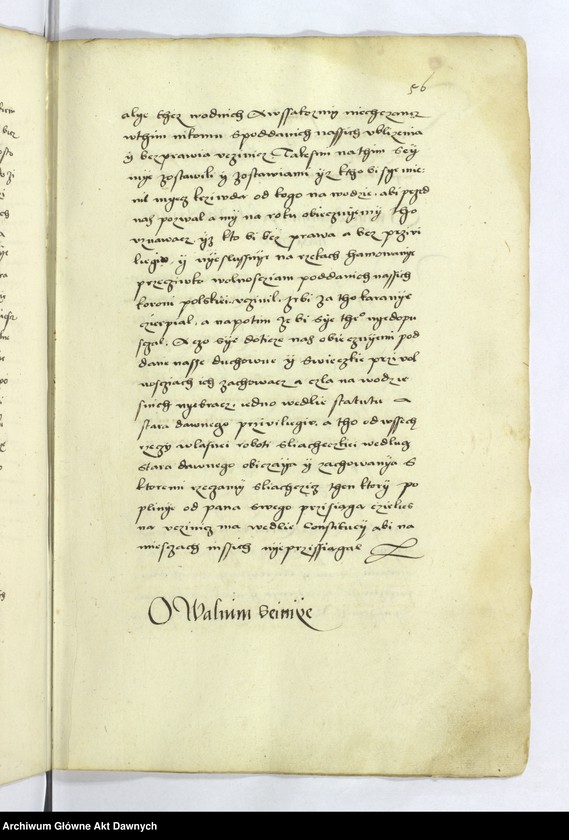 56
alye thez wodnich A wssakozmy niechczamy
wthim nikomu s poddanich nassich vblizenia
y bezprawia vczinicz Takesmi na thim Sey
mye zostawili y zostawiami yz ktho bi sye mie
nil myecz krziwda od kogo na wodzie, abi przed
nas pozwal a my na roku obieczuyemy tho
vznawacz, yz kto bi bez prawa a bez prziwi
liegio, y nyeslussnye na rzekach hamowanye
przeciwko wolnosciam poddanich nassich
koroni polskiei vczinil, zebi za tho karanye
czierpial, a napotim ze bi sye theo nyedopu
sczal, A czo sye doticze nas obieczuyemi pod
dane nasse duchowne y swieczkie przi wol
nosciach ich zachowacz a czla na wodzie
smich nyebracz, iedno wedlie statutu
stara dawnego priwiliegio, a tho od wssech
rzeczy wlasnei roboti sliacheczkiei wedlug
stara dawnego obiczaya y zachowanya s
ktoremi rzeczamy sliachczicz then ktory po
plinye od pana swego przisiaga czielies
na vczinicz ma wedlie Constitucy abi na
miesczach inssich nyeprzissiagal
O Walnim Seimye
Archiwum Główne Akt Dawnych